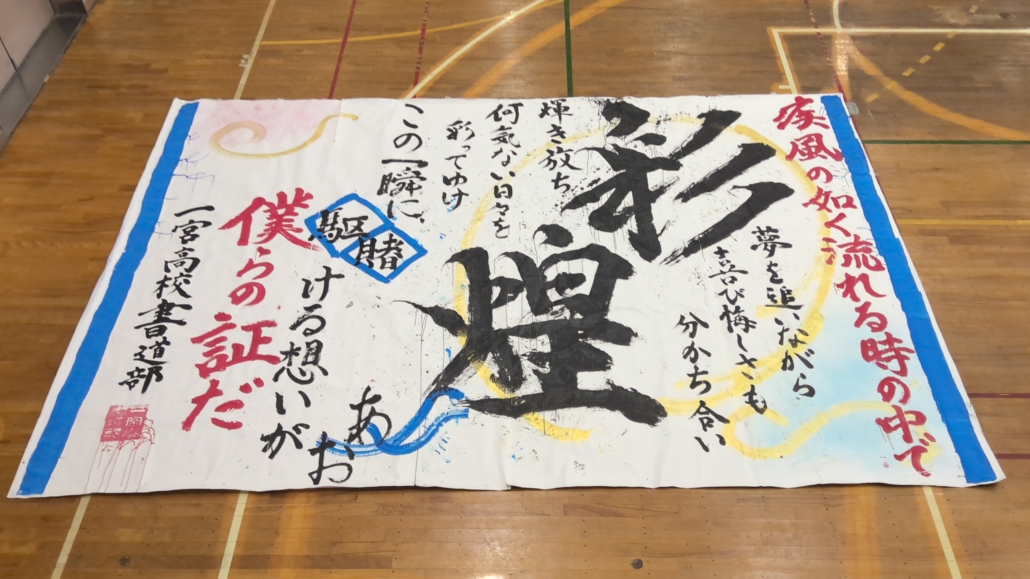 疾風の如く流れる時の中で
夢を追いながら
喜び悔しさも
分かち合い
彩煌
輝き放ち
何気ない日々を
彩ってゆけ
この一瞬に、
あお
駆賭
ける想いが
僕らの証だ
一宮高校書道部